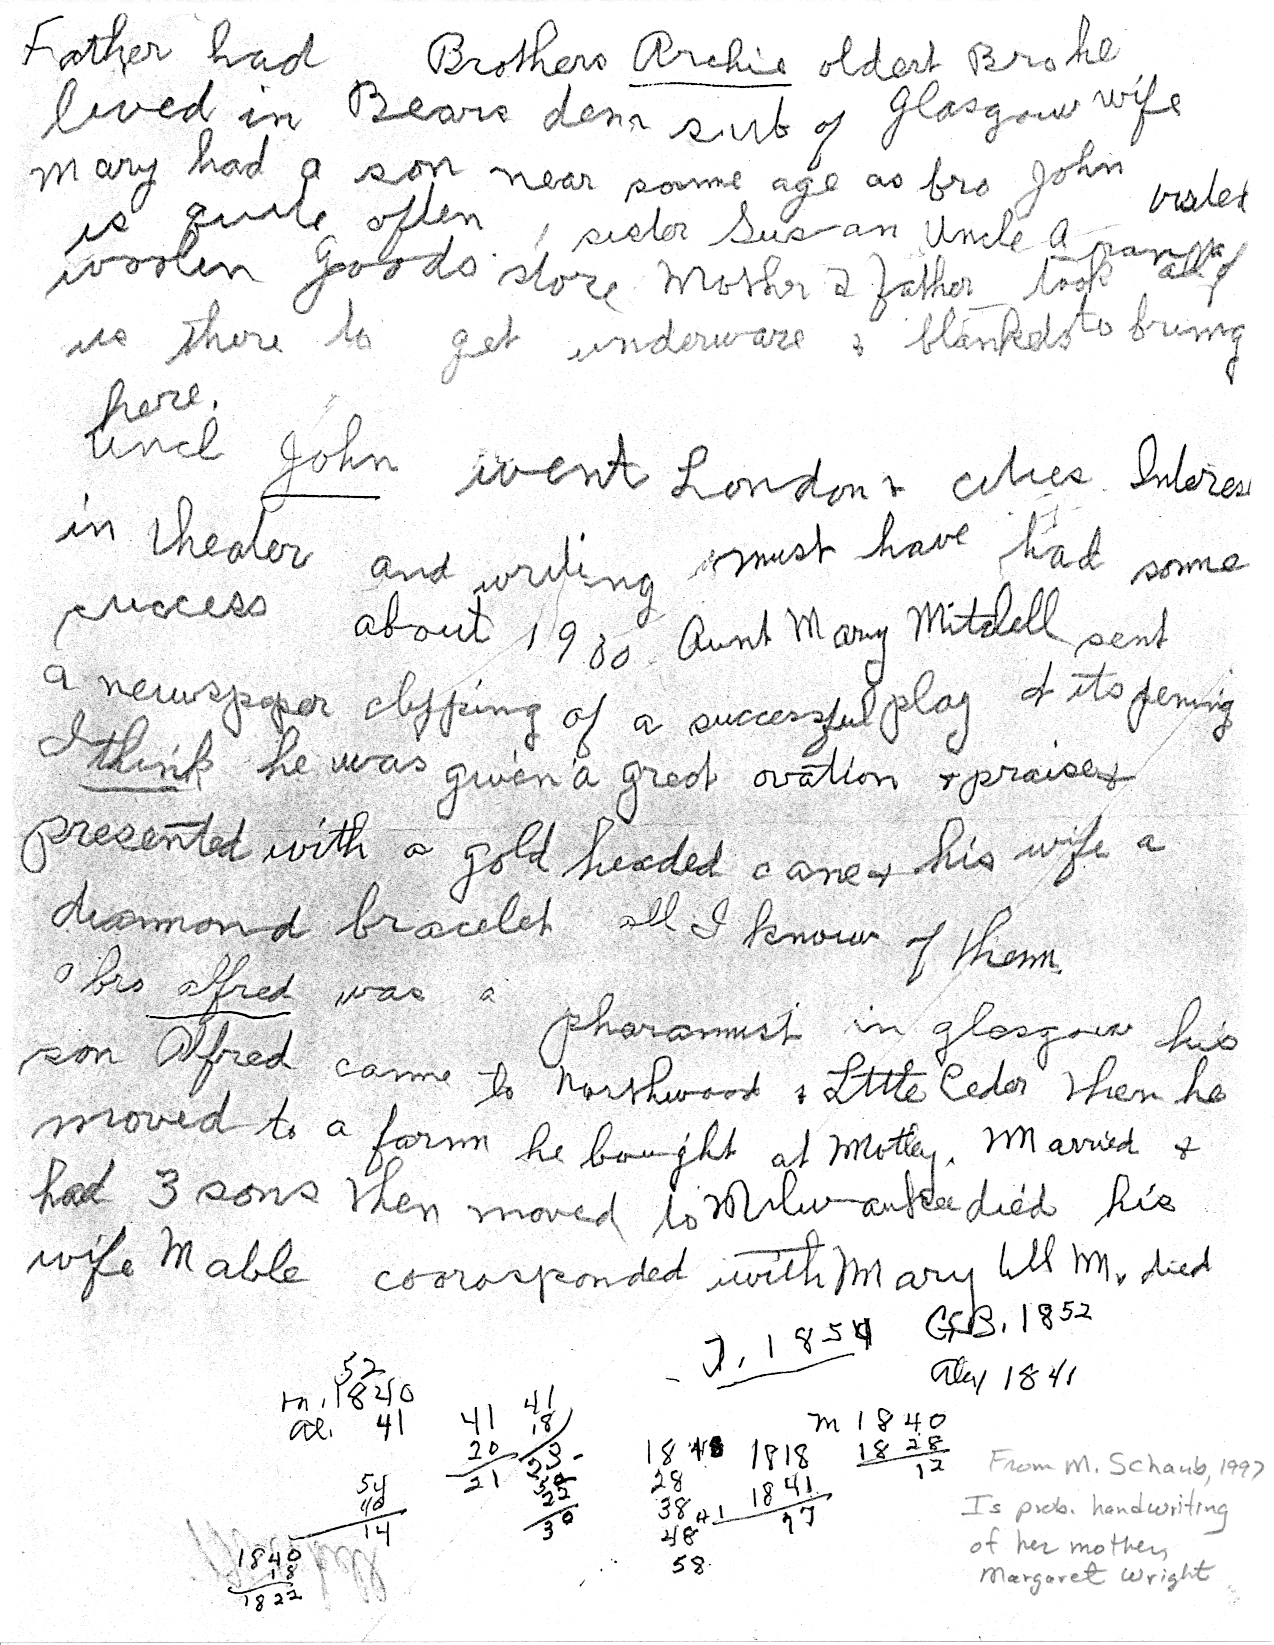 Father had Brothers Archie oldest Bro he
lived in Bears denn sub of Glasgow wife
Mary had a son near same age as bro John
visted
us quite often, sister Susan Uncle A ran
woolen Goods store Mother & father took all of
us there to get underware & blankeds to bring
here.
Uncl John went London & cities Interes
in theater and writing must have had some
success about 1930 Aunt Mary Mitchell sent
a newspaper clipping of a successful play & its pening
I think he was given a great ovation & praise &
presented with a gold headed cane & his wife a
diamond bracelet all I know of them.
a bro alfred was a pharamist in glasgow his
son Alfred came to Northwood & Little Ceder then he
moved to a farm he bought at Motley. Married &
had 3 sons then moved to Milwaukee died his
wife Mable coorosponded with Mary till M. died
J. 1854 G.B. 1852
Alex 1841
52
m. 1840
al. 41
41
20
21
41
18
23
54
40
14
30
1840
18
1822
18
28
38
48
58
1818
1841
M 1840
1828
12
From M. Schaub, 1997
Is prob. handwriting
of her mother,
Margaret Wright